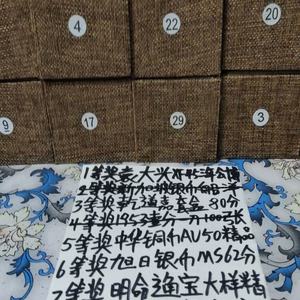 4
22
20
9
17
29
3
1等奖袁大头
3等奖乾通 80分
4等奖1953壹分一100张
5等奖中华铜币AU50精品
6等奖旭日银币MS62分
7等奖明命通宝大样精